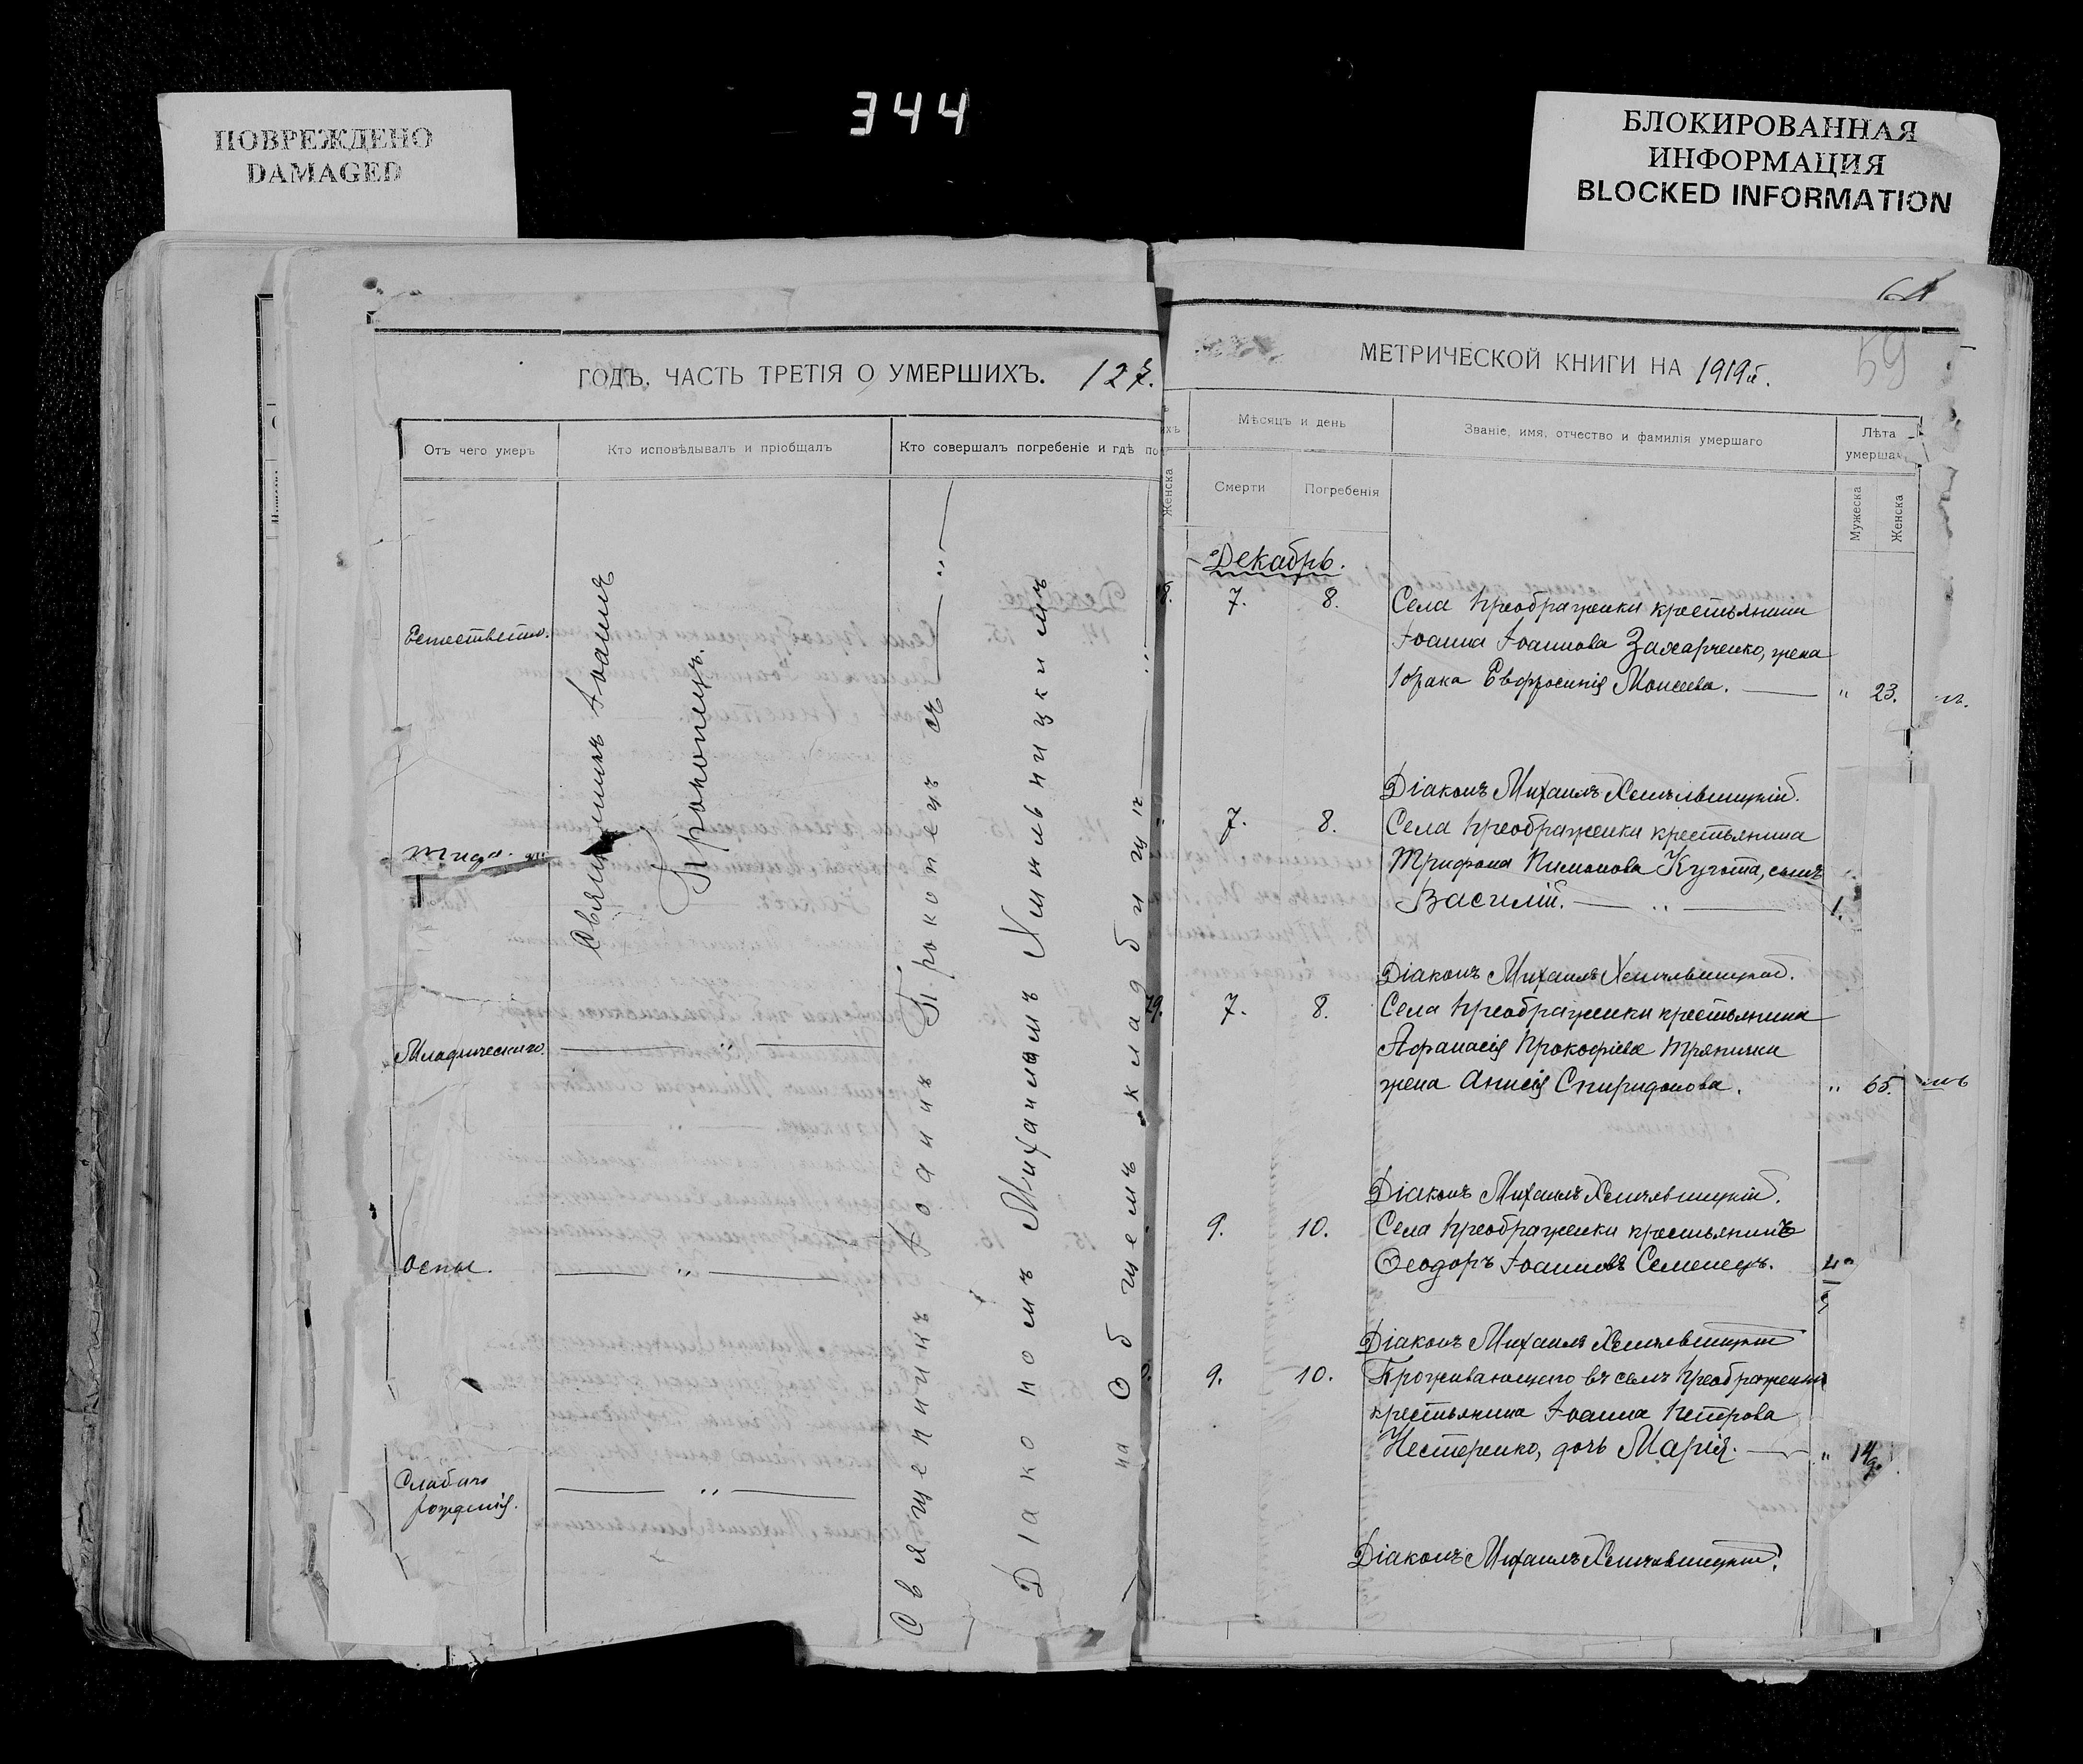 344
ПОВРЕЖДЕНО
DAMAGED
БЛОКИРОВАННАЯ
ИНФОРМАЦИЯ
BLOCKED INFORMATION
ГОДЪ, ЧАСТЬ ТРЕТІЯ О УМЕРШИХЪ. 127.
Отъ чего умеръ
Кто исповѣдывалъ и пріобщалъ
Кто совершалъ погребеніе и гдѣ по
Естествено.
Младенческаго.
Оспы.
Слабаго
рожденія.
Священникъ Іоаннъ
Прокопецъ.
Священникъ Іоаннъ Прокопецъ съ
Діакономъ Михаиломъ Хмильницкимъ
на Общемъ кладбищѣ
59
МЕТРИЧЕСКОЙ КНИГИ НА 1919й.
Женска
Мѣсяцъ и день
Смерти
Погребенія
Званіе, имя, отчество и фамилія умершаго
Лѣта
умерша
Мужеска
Женска
Декабрь.
8. 7. 8. Села Преображенки крестьянина
Іоанна Іоаннова Захарченко, жена
1 брака Евфросинія Моисеева. " 23.
Діаконъ Михаилъ Хмильницкій.
7. 8. Села Преображенки крестьянина
Трифона Пимонова Кугота, сынъ
Василій. 1.
Діаконъ Михаилъ Хмильницкій.
79. 7. 8. Села Преображенки крестьянина
Афанасія Прокофіева Трянички
жена Анисія Спиридонова. " 65.
Діаконъ Михаилъ Хмильницкій.
9. 10. Села Преображенки крестьянинъ
Ѳеодоръ Іоанновъ Семенецъ.
Діаконъ Михаилъ Хмильницкій
9. 10. Проживающего въ селѣ Преображенки
крестьянина Іоанна Петрова
Нестеренко, дочь Марія. " 14
Діаконъ Михаилъ Хмильницкій.